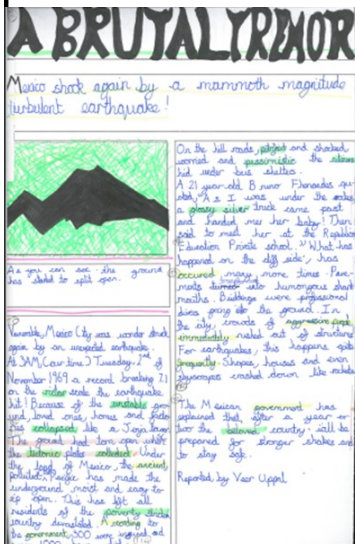 A BRUTAL TREMOR
Mexico shook again by a mammoth magnitude
turbulent earthquake!
As you can see the ground
has started to split open.
Venerable, Mexico City was wonder struck
again by an unexpected earthquake.
At 3AM (our time) Tuesday 2nd of
November 1969 a record breaking 7.1
on the ricter scale the earthquake
hit! Because of the unstable
land, ones, homes and
collapsed like a Jenga tower
The ground had torn open when
the tectonic plates collided. Under
the land of Mexico, the ancient
polluted Pacific has made the
underground moist and easy to
rip open. This has left all
residents of the poverty stricken
country devastated. According to
the government, 300 were injured, and
On the hill roads, and shocked
worried and pessimistic the
hid under bus shelters.
A 21 year old, Bruno Fhernandes
"As I was under the
a glossy silver truck came past
and handed me her baby! Then
said to meet her at the Republic
Education Private school." What has
happened on the cliff side, has
occured many more times. Pave-
ments turned into humongous shark
mouths. Buildings were professional
divers going into the ground. In
the city, crowds of aggressive
immediately rushed out of structures
For earthquakes, this happens quite
Shops, houses and even
skyscrapes crashed down like rockets
The Mexican government has
explained that after a year or
two the beloved country will be
prepared for stronger shakes and
to stay safe.
Reported by Veer Uppal